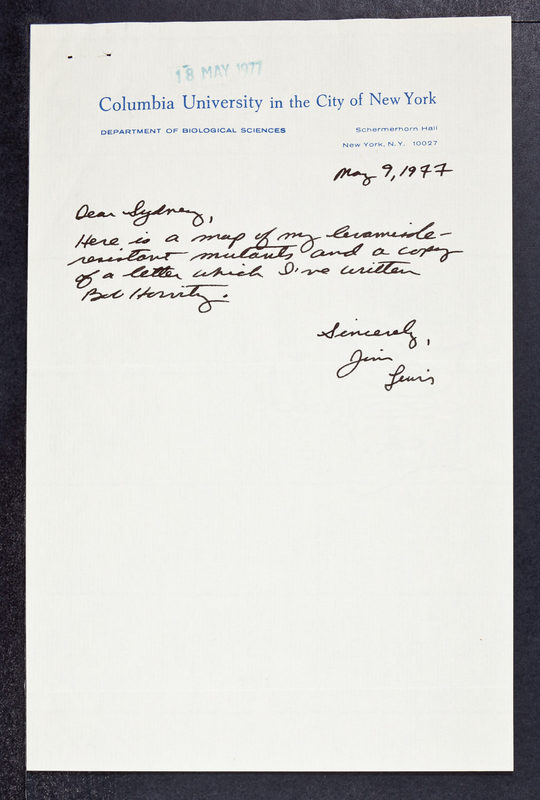 18 MAY 1977
Columbia University in the City of New York
DEPARTMENT OF BIOLOGICAL SCIENCES
Schermerhorn Hall
New York, N.Y. 10027
May 9, 1977
Dear Sydney,
Here is a map of my levamisole-
resistant mutants and a copy
of a letter which I've written
Bob Horvitz.
Sincerely,
Jim
Lewis